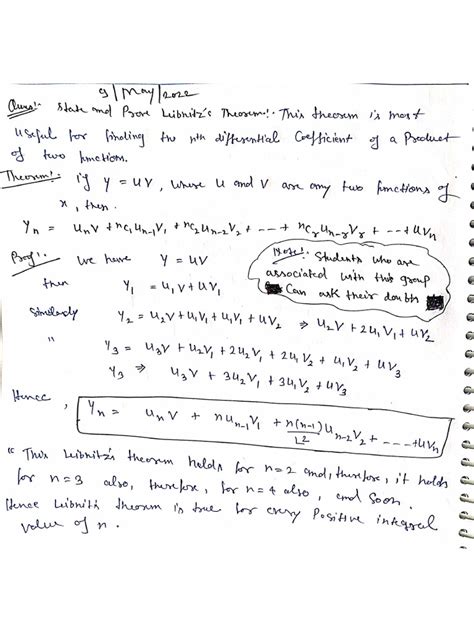 9/May/2022
Ques:- State and Prove Leibnitz's Theorem:- This theorem is most
useful for finding the nth differential Coefficient of a Product
of two functions.
Theorem:- if y = uv, where u and v are any two functions of
x, then.
yₙ = uₙv + nc₁uₙ₋₁v₁ + nc₂uₙ₋₂v₂ + --- + ncᵣuₙ₋ᵣvᵣ + --- + uvₙ
Proof:- we have y = uv
Note:- Students who are
associated with this group
Can ask their doubts
then y₁ = u₁v + uv₁
Similarly y₂ = u₂v + u₁v₁ + u₁v₁ + uv₂ ⇒ u₂v + 2u₁v₁ + uv₂
" y₃ = u₃v + u₂v₁ + 2u₂v₁ + 2u₁v₂ + u₁v₂ + uv₃
y₃ ⇒ u₃v + 3u₂v₁ + 3u₁v₂ + uv₃
Hence, yₙ = uₙv + nuₙ₋₁v₁ + n(n-1)/∟2 uₙ₋₂v₂ + ---- + uvₙ
" This Leibnitz's theorem holds for n=2 and, therefore, it holds
for n=3 also, therefore, for n=4 also, and soon.
Hence Leibnitz theorem is true for every Positive integral
value of n.